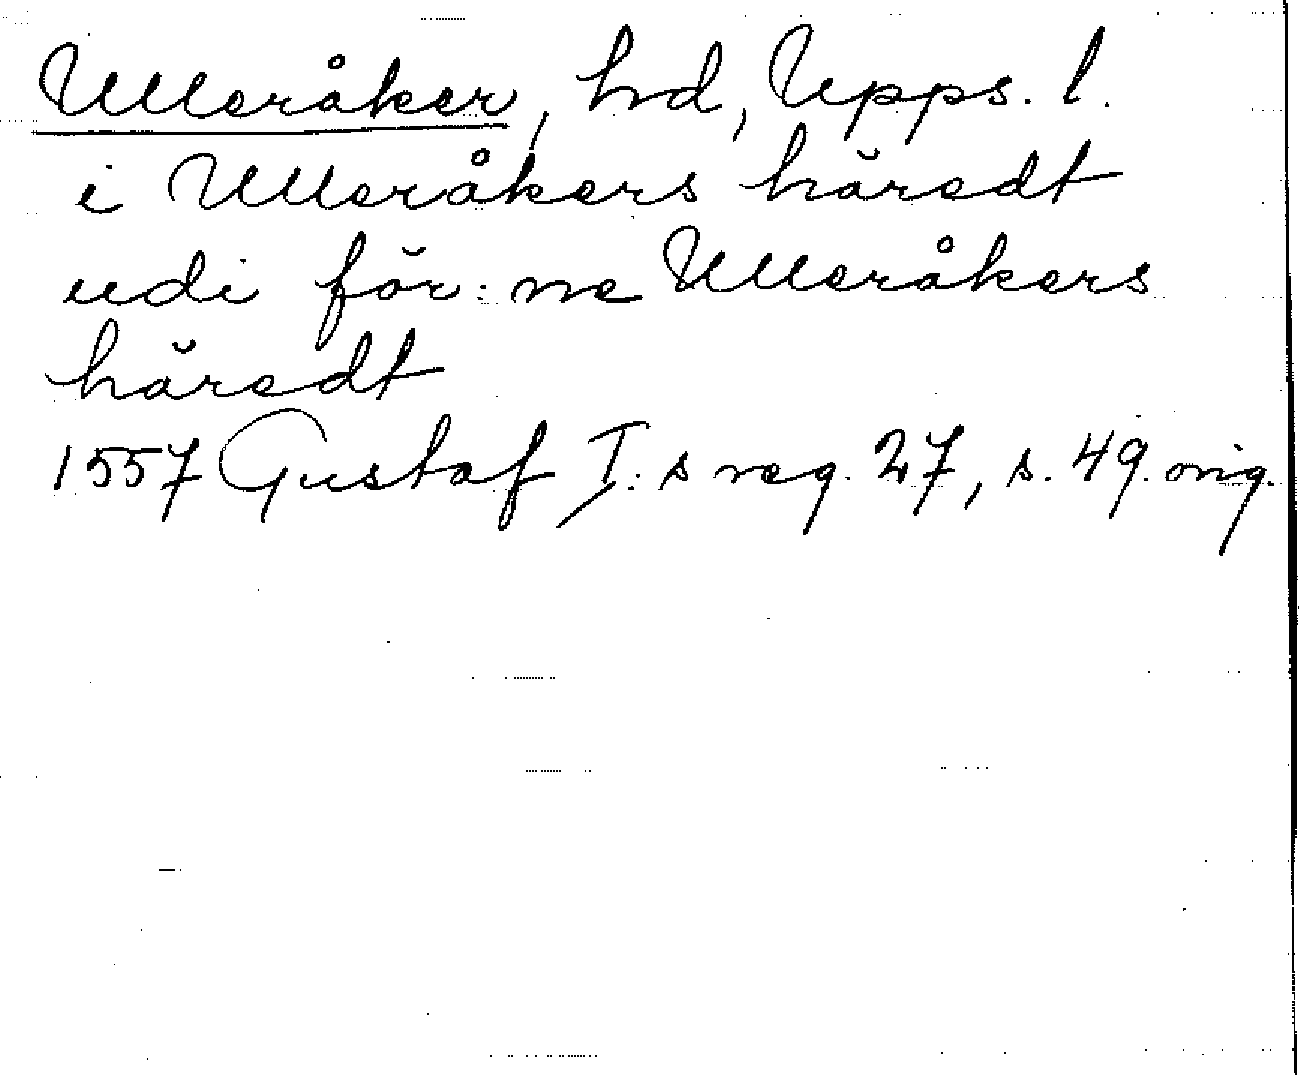 Ulleråker, hd, Upps. l.
i Ulleråkers häredt
udi för:ne Ulleråkers
häredt
1557 Gustaf I:s reg. 27, s. 49. orig.